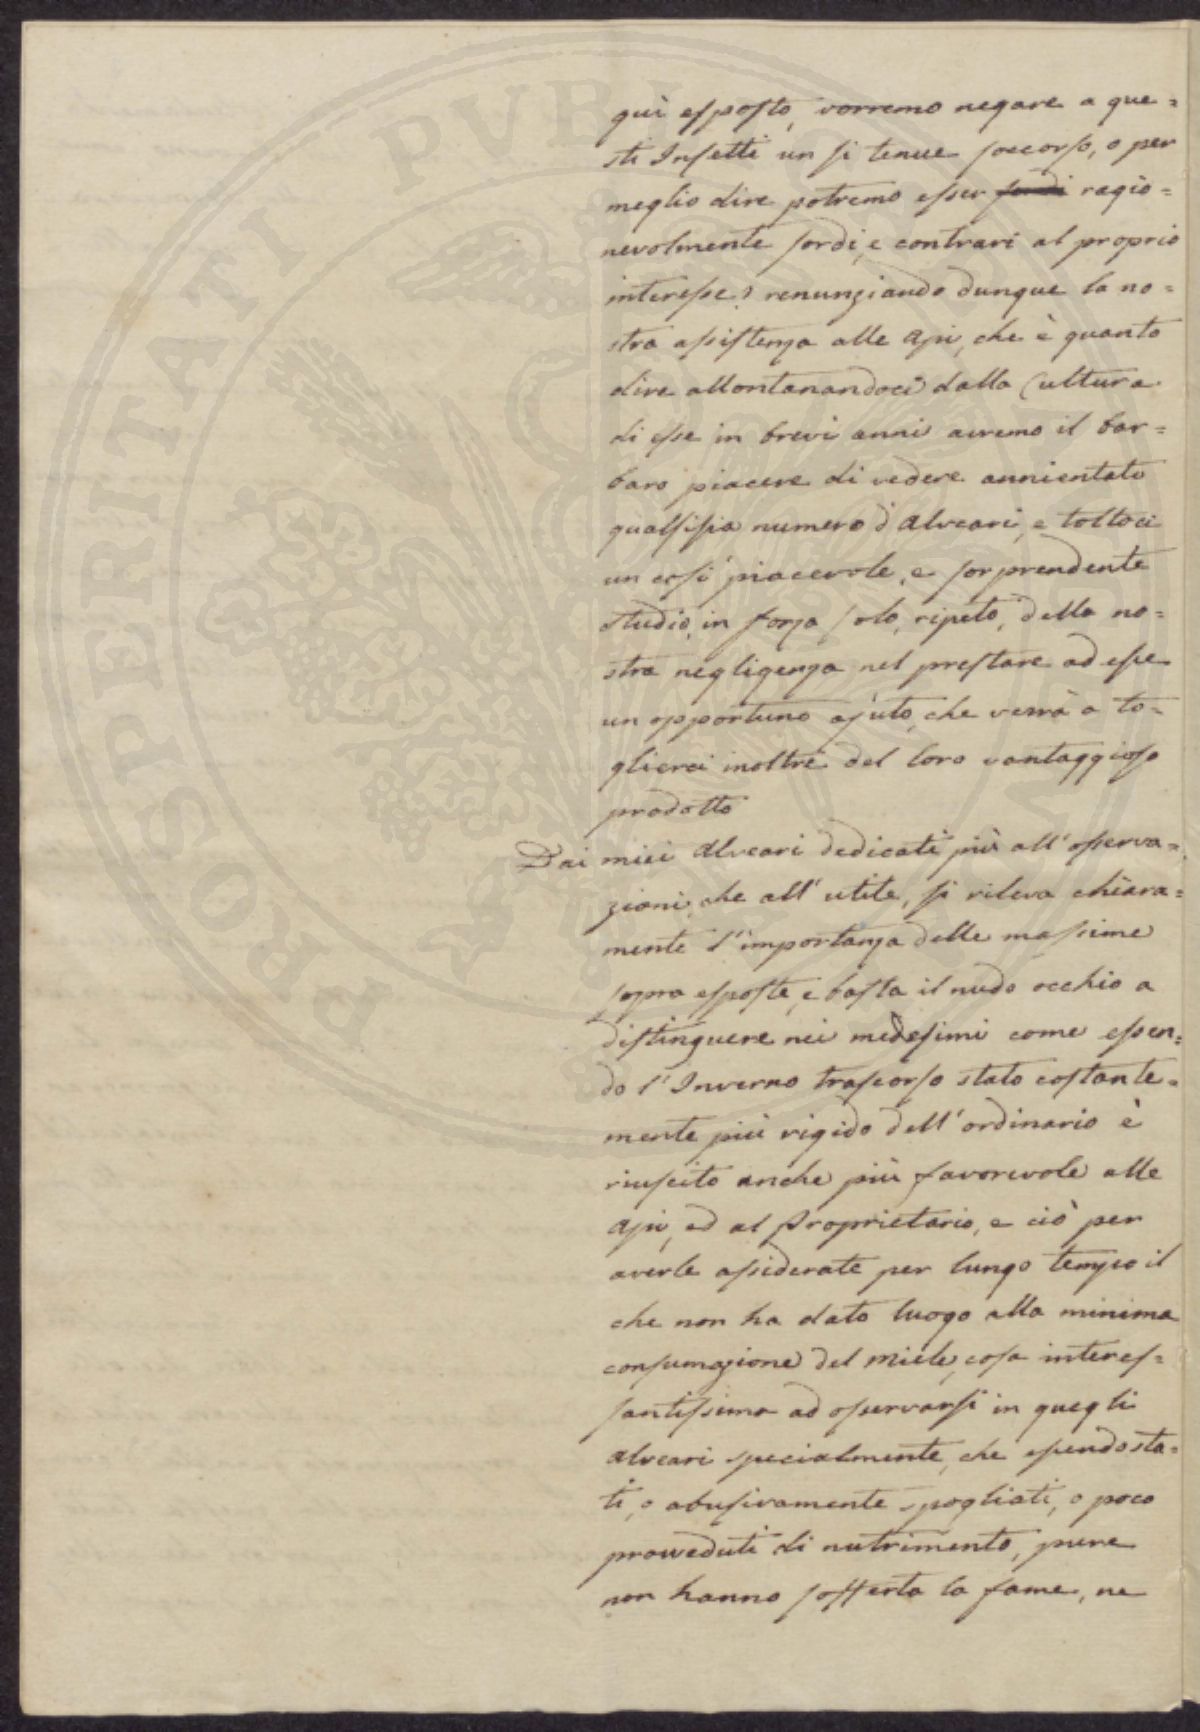 PROSPERITATI PVBLICAE
quì esposto, vorremo negare a que=
sti Insetti un si tenue soccorso, o per
meglio dire potremo esser sordi ragio=
nevolmente sordi, e contrari al proprio
interesse? renunziando dunque la no=
stra assistenza alle Api, che è quanto
dire allontanandoci dalla Cultura
di esse in brevi anni avremo il bar=
baro piacere di vedere annientato
qualsisia numero d'Alveari, e toltoci
un così piacevole, e sorprendente
studio, in forza solo, ripeto, della no=
stra negligenza nel prestare ad esse
un opportuno ajuto, che verrà a to=
glierci inoltre del loro vantaggioso
prodotto
Dai miei Alveari dedicati più all'osserva=
zioni, che all'utile, si rileva chiara=
mente l'importanza delle massime
sopra esposte, e basta il nudo occhio a
distinguere nei medesimi come essen=
do l'Inverno trascorso stato costante=
mente più rigido dell'ordinario è
riuscito anche più favorevole alle
Api, ed al Proprietario, e ciò per
averle assiderate per lungo tempo il
che non ha dato luogo alla minima
consumazione del miele, cosa interes=
santissima ad osservarsi in quegli
alveari specialmente, che essendo sta=
ti, o abusivamente spogliati, o poco
provveduti di nutrimento, pure
non hanno sofferta la fame, ne